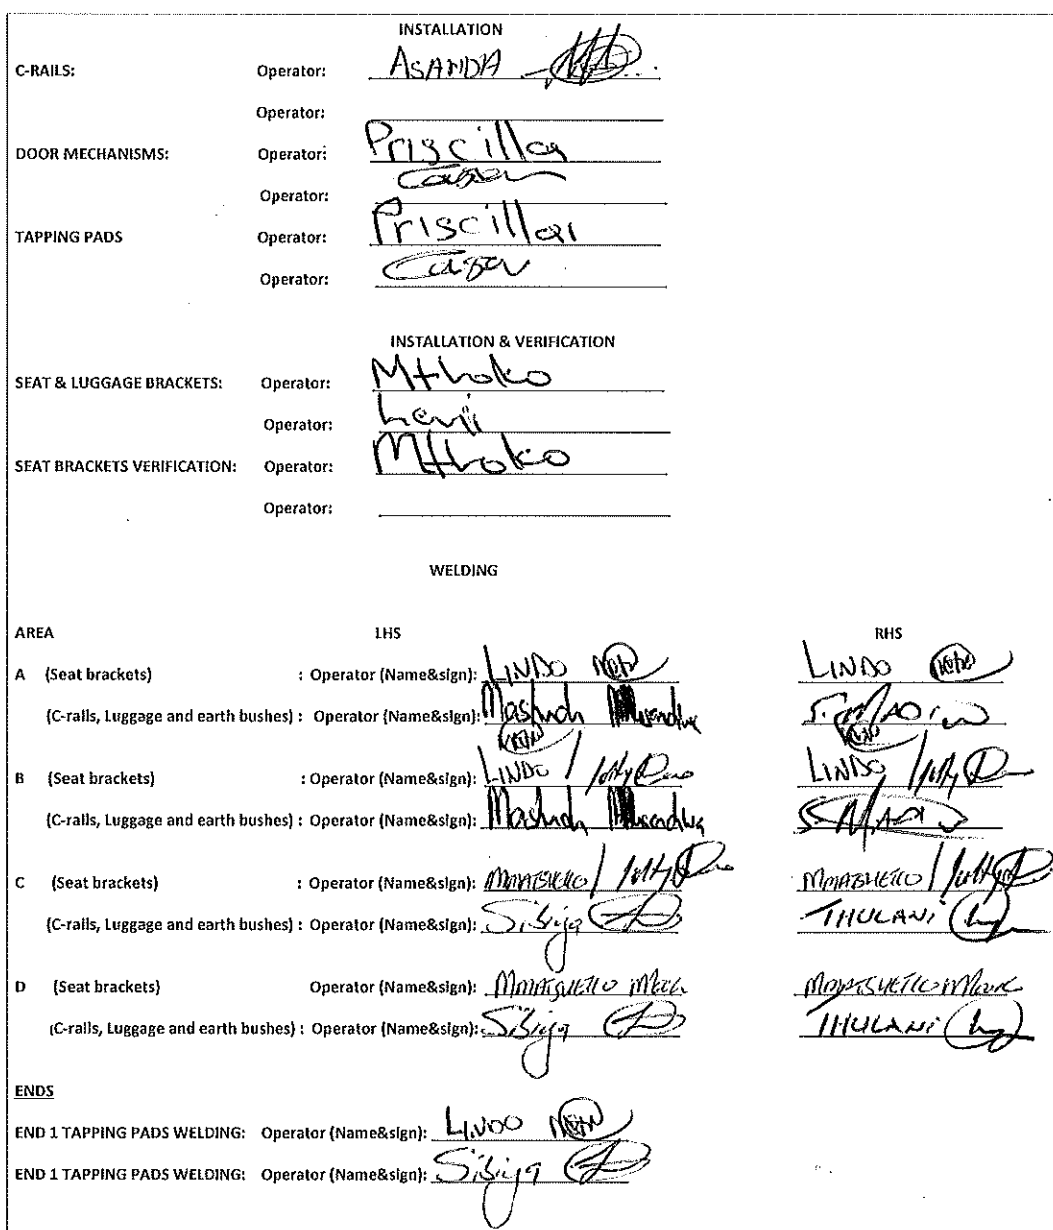 INSTALLATION
C-RAILS: Operator: ASANDA
Operator:
DOOR MECHANISMS: Operator: Priscilla
Operator:
TAPPING PADS Operator: Priscilla
Operator:
INSTALLATION & VERIFICATION
SEAT & LUGGAGE BRACKETS: Operator: Mthoko
Operator:
SEAT BRACKETS VERIFICATION: Operator: Mthoko
Operator:
WELDING
AREA LHS RHS
A (Seat brackets) : Operator (Name&sign): LINDO LINDO
(C-rails, Luggage and earth bushes) : Operator (Name&sign):
B (Seat brackets) : Operator (Name&sign): LINDO / LINDO /
(C-rails, Luggage and earth bushes) : Operator (Name&sign):
C (Seat brackets) : Operator (Name&sign): / /
(C-rails, Luggage and earth bushes) : Operator (Name&sign): Sibiya THULANI
D (Seat brackets) Operator (Name&sign):
(C-rails, Luggage and earth bushes) : Operator (Name&sign): Sibiya THULANI
ENDS
END 1 TAPPING PADS WELDING: Operator (Name&sign): LINDO
END 1 TAPPING PADS WELDING: Operator (Name&sign): Sibiya